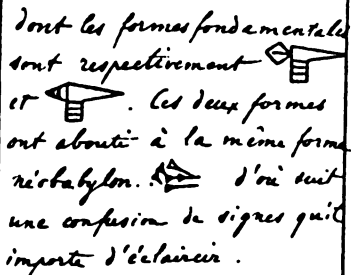 dont les formes fondamentales
sont respectivement
et . Ces deux formes
ont abouti à la même forme
néobabylon. d'où suit
une confusion de signes qu'il
importe d'éclaircir .